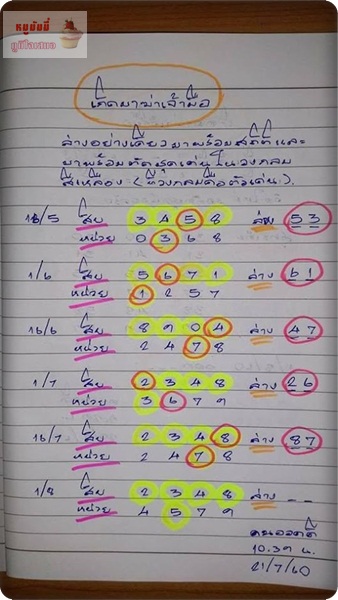 หมูบันปี้
เกิดมาฆ่าเจ้ามือ
ล่างอย่างเดียว มาพร้อมสถิติและ
มาพร้อมตัวชุดเด่นในวงกลม
สีเหลือง (ที่วงกลมคือตัวเด่น).
16/5 สิบ 3 4 5 8 ล่าง 53
หน่วย 0 3 6 8
1/6 สิบ 5 6 7 1 ล่าง 61
หน่วย 1 2 5 7
16/6 สิบ 8 9 0 4 ล่าง 47
หน่วย 2 4 7 8
1/7 สิบ 2 3 4 8 ล่าง 26
หน่วย 3 6 7 9
16/7 สิบ 2 3 4 8 ล่าง 87
หน่วย 2 4 7 8
1/8 สิบ 2 3 4 8 ล่าง _ _
หน่วย 4 5 7 9
คนคอดี
10.39 น.
21/7/60